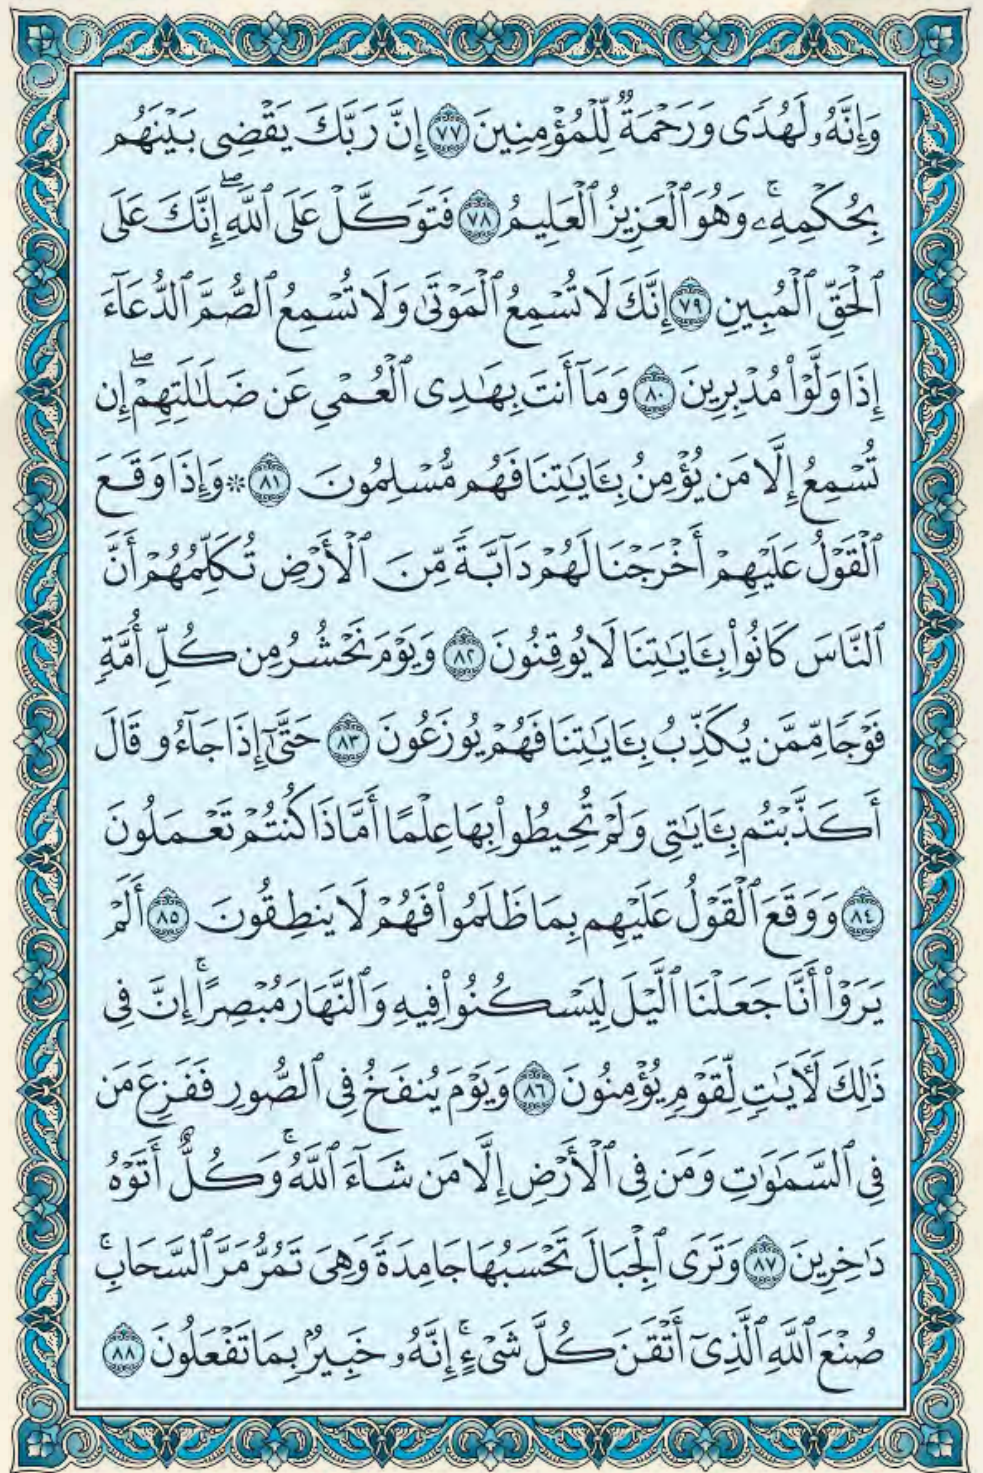 وَإِنَّهُۥ لَهُدًى وَرَحْمَةٌ لِّلْمُؤْمِنِينَ ٧٧ إِنَّ رَبَّكَ يَقْضِى بَيْنَهُم
بِحُكْمِهِۦۚ وَهُوَ ٱلْعَزِيزُ ٱلْعَلِيمُ ٧٨ فَتَوَكَّلْ عَلَى ٱللَّهِۖ إِنَّكَ عَلَى
ٱلْحَقِّ ٱلْمُبِينِ ٧٩ إِنَّكَ لَا تُسْمِعُ ٱلْمَوْتَىٰ وَلَا تُسْمِعُ ٱلصُّمَّ ٱلدُّعَآءَ
إِذَا وَلَّوْا۟ مُدْبِرِينَ ٨٠ وَمَآ أَنتَ بِهَـٰدِى ٱلْعُمْىِ عَن ضَلَـٰلَتِهِمْۖ إِن
تُسْمِعُ إِلَّا مَن يُؤْمِنُ بِـَٔايَـٰتِنَا فَهُم مُّسْلِمُونَ ٨١ * وَإِذَا وَقَعَ
ٱلْقَوْلُ عَلَيْهِمْ أَخْرَجْنَا لَهُمْ دَآبَّةً مِّنَ ٱلْأَرْضِ تُكَلِّمُهُمْ أَنَّ
ٱلنَّاسَ كَانُوا۟ بِـَٔايَـٰتِنَا لَا يُوقِنُونَ ٨٢ وَيَوْمَ نَحْشُرُ مِن كُلِّ أُمَّةٍ
فَوْجًا مِّمَّن يُكَذِّبُ بِـَٔايَـٰتِنَا فَهُمْ يُوزَعُونَ ٨٣ حَتَّىٰٓ إِذَا جَآءُو قَالَ
أَكَذَّبْتُم بِـَٔايَـٰتِى وَلَمْ تُحِيطُوا۟ بِهَا عِلْمًا أَمَّاذَا كُنتُمْ تَعْمَلُونَ
٨٤ وَوَقَعَ ٱلْقَوْلُ عَلَيْهِم بِمَا ظَلَمُوا۟ فَهُمْ لَا يَنطِقُونَ ٨٥ أَلَمْ
يَرَوْا۟ أَنَّا جَعَلْنَا ٱلَّيْلَ لِيَسْكُنُوا۟ فِيهِ وَٱلنَّهَارَ مُبْصِرًاۚ إِنَّ فِى
ذَٰلِكَ لَـَٔايَـٰتٍ لِّقَوْمٍ يُؤْمِنُونَ ٨٦ وَيَوْمَ يُنفَخُ فِى ٱلصُّورِ فَفَزِعَ مَن
فِى ٱلسَّمَـٰوَٰتِ وَمَن فِى ٱلْأَرْضِ إِلَّا مَن شَآءَ ٱللَّهُۚ وَكُلٌّ أَتَوْهُ
دَٰخِرِينَ ٨٧ وَتَرَى ٱلْجِبَالَ تَحْسَبُهَا جَامِدَةً وَهِىَ تَمُرُّ مَرَّ ٱلسَّحَابِۚ
صُنْعَ ٱللَّهِ ٱلَّذِىٓ أَتْقَنَ كُلَّ شَىْءٍۚ إِنَّهُۥ خَبِيرٌۢ بِمَا تَفْعَلُونَ ٨٨